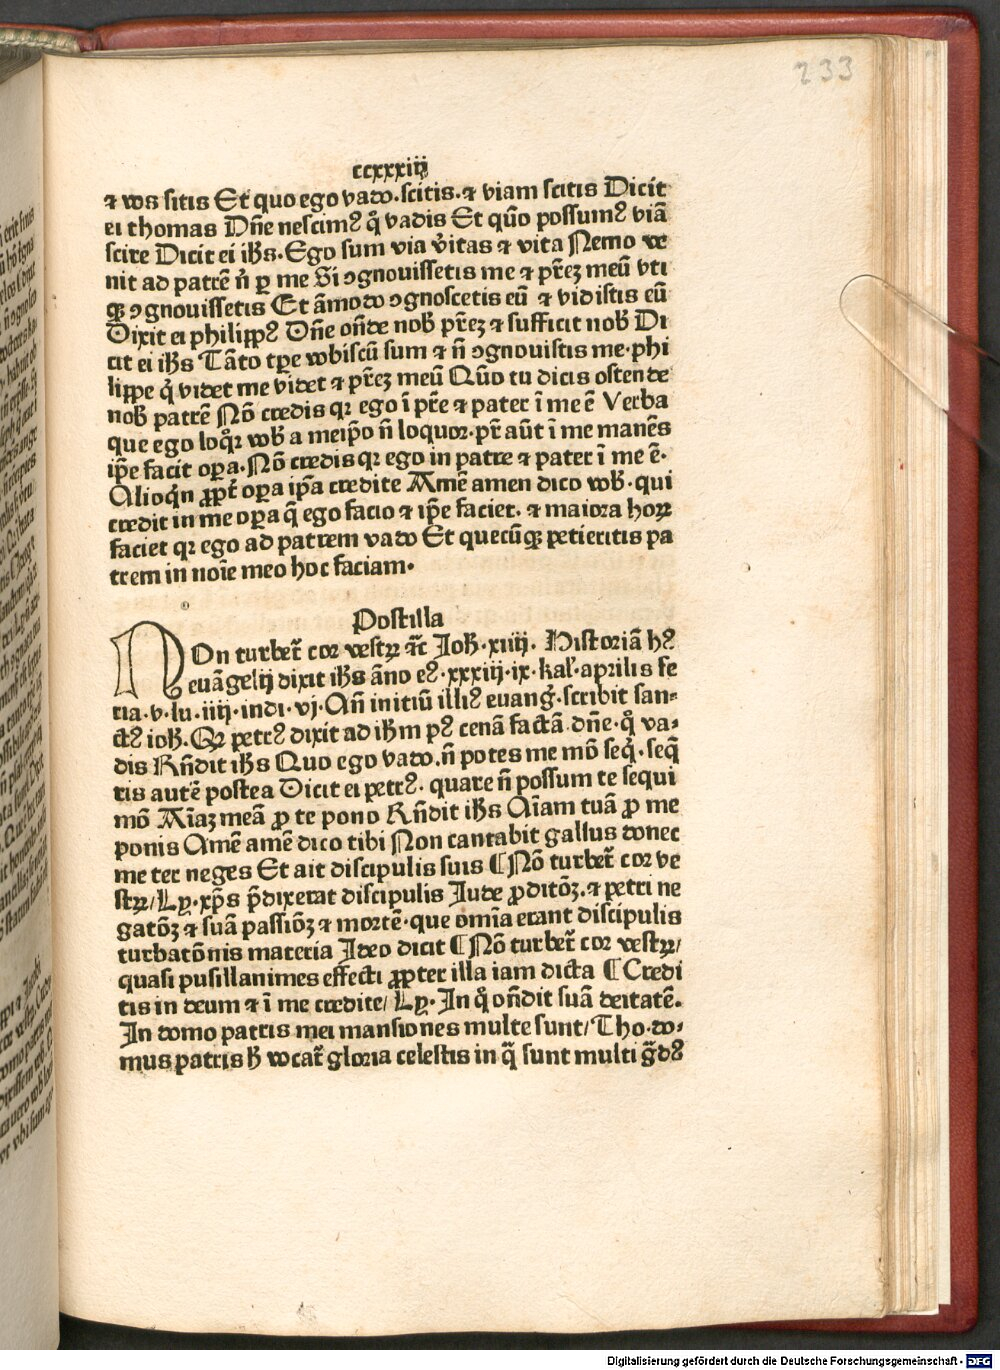 233
ccxxxiij
⁊ vos sitis Et quo ego vado.scitis.⁊ viam scitis Dicit
ei thomas Dn̄e nescimꝰ q̊ vadis Et quō possumꝰ viā
scire Dicit ei ihs̄.Ego sum via v̓itas ⁊ vita Nemo ve
nit ad patrē n̓ ꝑ me Si ↄgnovissetis me ⁊ pr̄eꝫ meū vti
qꝫ ↄgnovissetis Et āmodo ↄgnoscetis eū ⁊ vidistis eū
Dixit ei philippꝰ Dn̄e on̄de nob̄ pr̄eꝫ ⁊ sufficit nob̄ Di
cit ei ihs̄ Tāto tꝑe vobiscū sum ⁊ n̄ ↄgnovistis me.phi
lippe q̓ videt me videt ⁊ pr̄eꝫ meū Quō tu dicis ostende
nob̄ patrē Nō credis qꝛ ego ī pr̄e ⁊ pater ī me ē Verba
que ego loq̊r vob̄ a meip̄o n̄ loquor.pr̄ aūt ī me manēs
ip̄e facit oꝑa.Nō credis qꝛ ego in patre ⁊ pater ī me ē.
Alioq̓n ꝓpt̄ oꝑa ip̄a credite Amē amen dico vob̄.qui
credit in me oꝑa q̄ ego facio ⁊ ip̄e faciet.⁊ maiora hoꝝ
faciet qꝛ ego ad patrem vado Et quecūqꝫ petieritis pa
trem in noīe meo hoc faciam.
Postilla
NOn turbet̄ cor vestꝝ ⁊c̄ Joh̄.xiiij. Historiā hꝰ
euāgelij dixit ihs̄ āno eꝰ.xxxiij.ix.kal̄.aprilis fe
ria.v.lu.iiij.indi.vj.An̄ initiū illiꝰ evang̓.scribit san-
ctꝰ ioh̄.Qꝛ petrꝰ dixit ad ihm̄ pꝰ cenā factā dn̄e.q̊ va-
dis Rn̄dit ihs̄ Quo ego vado.n̄ potes me mō seq̓.seq̄
ris autē postea Dicit ei petrꝰ.quare n̄ possum te sequi
mō Aīaꝫ meā ꝓ te pono Rn̄dit ihs̄ Aīam tuā ꝓ me
ponis Amē amē dico tibi Non cantabit gallus donec
me ter neges Et ait discipulis suis ¶Nō turbet̄ cor ve
stꝝ/Ly.xp̄s p̄dixerat discipulis Jude ꝓditōꝫ.⁊ petri ne
gatōꝫ ⁊ suā passiōꝫ ⁊ mortē.que om̄ia erant discipulis
turbatōnis materia Ideo dicit ¶Nō turbet̄ cor vestꝝ/
quasi pusillanimes effecti ꝓpter illa iam dicta ¶Credi
tis in deum ⁊ ī me credite/Ly.In q̊ on̄dit suā deitatē.
In domo patris mei mansiones multe sunt/Tho.do-
mus patris h̄ vocat̄ gloria celestis in q̄ sunt multi ḡdꝰ
Digitalisierung gefördert durch die Deutsche Forschungsgemeinschaft - DFG